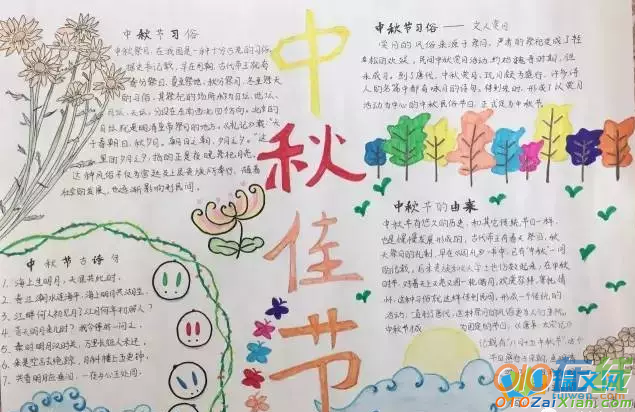 中秋佳节
中秋节习俗
中秋祭月，在我国是一种十分古老的习俗。
据史书记载，早在周朝，古代帝王就有
春分祭日、夏至祭地、秋分祭月、冬至祭天
的习俗，其祭祀的场所称为日坛、地坛、
月坛、天坛，分设在东南西北四个方向。北京的
月坛就是明清皇帝祭月的地方。《礼记》载："天
子春朝日，秋夕月。朝日之朝，夕月之夕。"这
里的夕月之夕，指的正是夜晚祭祀月亮。
这种风俗不仅为宫廷及上层贵族所奉行，随着
社会的发展，也逐渐影响到民间。
中秋节古诗句
1、海上生明月，天涯共此时。
2、春江潮水连海平，海上明月共潮生。
3、江畔何人初见月？江月何年初照人？
4、青天明月来几时？我今停杯一问之。
5、
6、来是空言去绝踪，月斜楼上五更钟。
7、共看明月应垂泪，一夜乡心五处同。
中秋节习俗——文人赏月
赏月的风俗来源于祭月，严肃的祭祀变成了轻
松的欢娱。民间中秋赏月活动约始魏晋时期，但
未成习。到了唐代，中秋赏月、玩月颇为盛行，许多诗
人的名篇中都有咏月的诗句，
活动为中心的中秋民俗节日，正式定为中秋节。
中秋节的由来
中秋节有悠久的历史，和其它传统节日一样，
也是慢慢发展形成的，古代帝王有春天祭日，秋
天祭月的礼制，早在《周礼》一书中，已有"中秋"一词
的记载。后来贵族和文人学士也仿效起来，在中秋
时节，对着天上又亮又圆一轮皓月，观赏祭拜，寄托情
怀，这种习俗就这样传到民间，形成一个传统的
活动，一直到了唐代，这种祭月的风俗更为人们重视，
中秋节才成为固定的节日，《唐书·太宗记》
记载有"八月十五中秋节"，这个
在线
作文网
zuowen.com
010ZaiXian.com